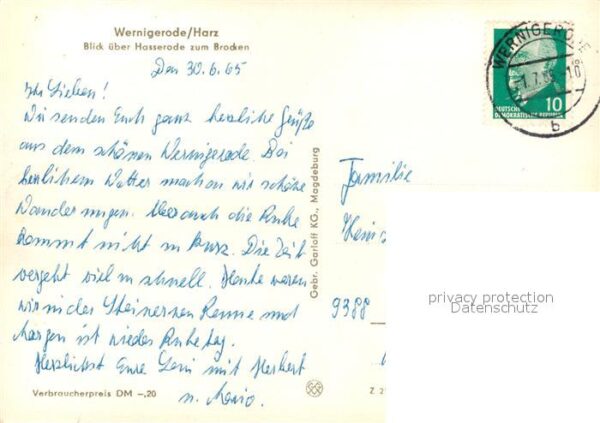 Wernigerode/Harz
Blick über Hasserode zum Brocken
Den 30.6.65
Ihr Lieben!
Wir senden Euch ganz herzliche Grüße
aus dem schönen Wernigerode. Bei
herrlichem Wetter machen wir schöne
Wanderungen. Aber auch die Ruhe
kommt nicht zu kurz. Die Zeit
vergeht viel zu schnell. Heute waren
wir in der Steinernen Renne und
Morgen ist wieder Ruhetag.
Herzlichst Eure mit Herbert
u. Mario.
Verbraucherpreis DM -,20
Gebr. Garloff KG., Magdeburg
WERNIGERODE
1.7.65
b
10
DEUTSCHE
DEMOKRATISCHE REPUBLIK
Familie
9388
privacy protection
Datenschutz
Z 2